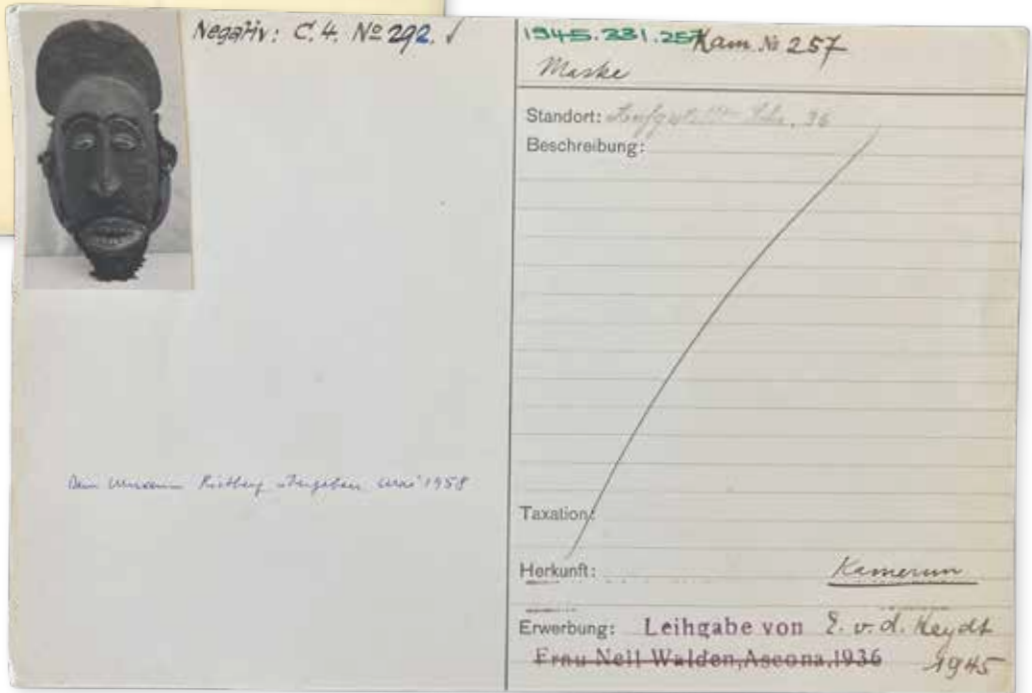 Negativ: C. 4. No 292. √
Dem Museum Rietberg übergeben Mai 1958
1945.331.257 Kam. No 257
Maske
Standort: 36
Beschreibung:
Taxation:
Herkunft: Kamerun
Erwerbung: Leihgabe von E. v. d. Heydt
Frau Nell Walden, Ascona, 1936 1945